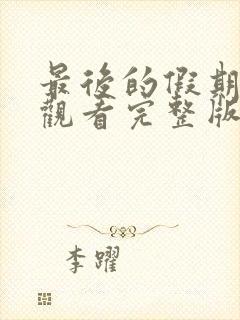 最後的假期
觀看完整版
李躍